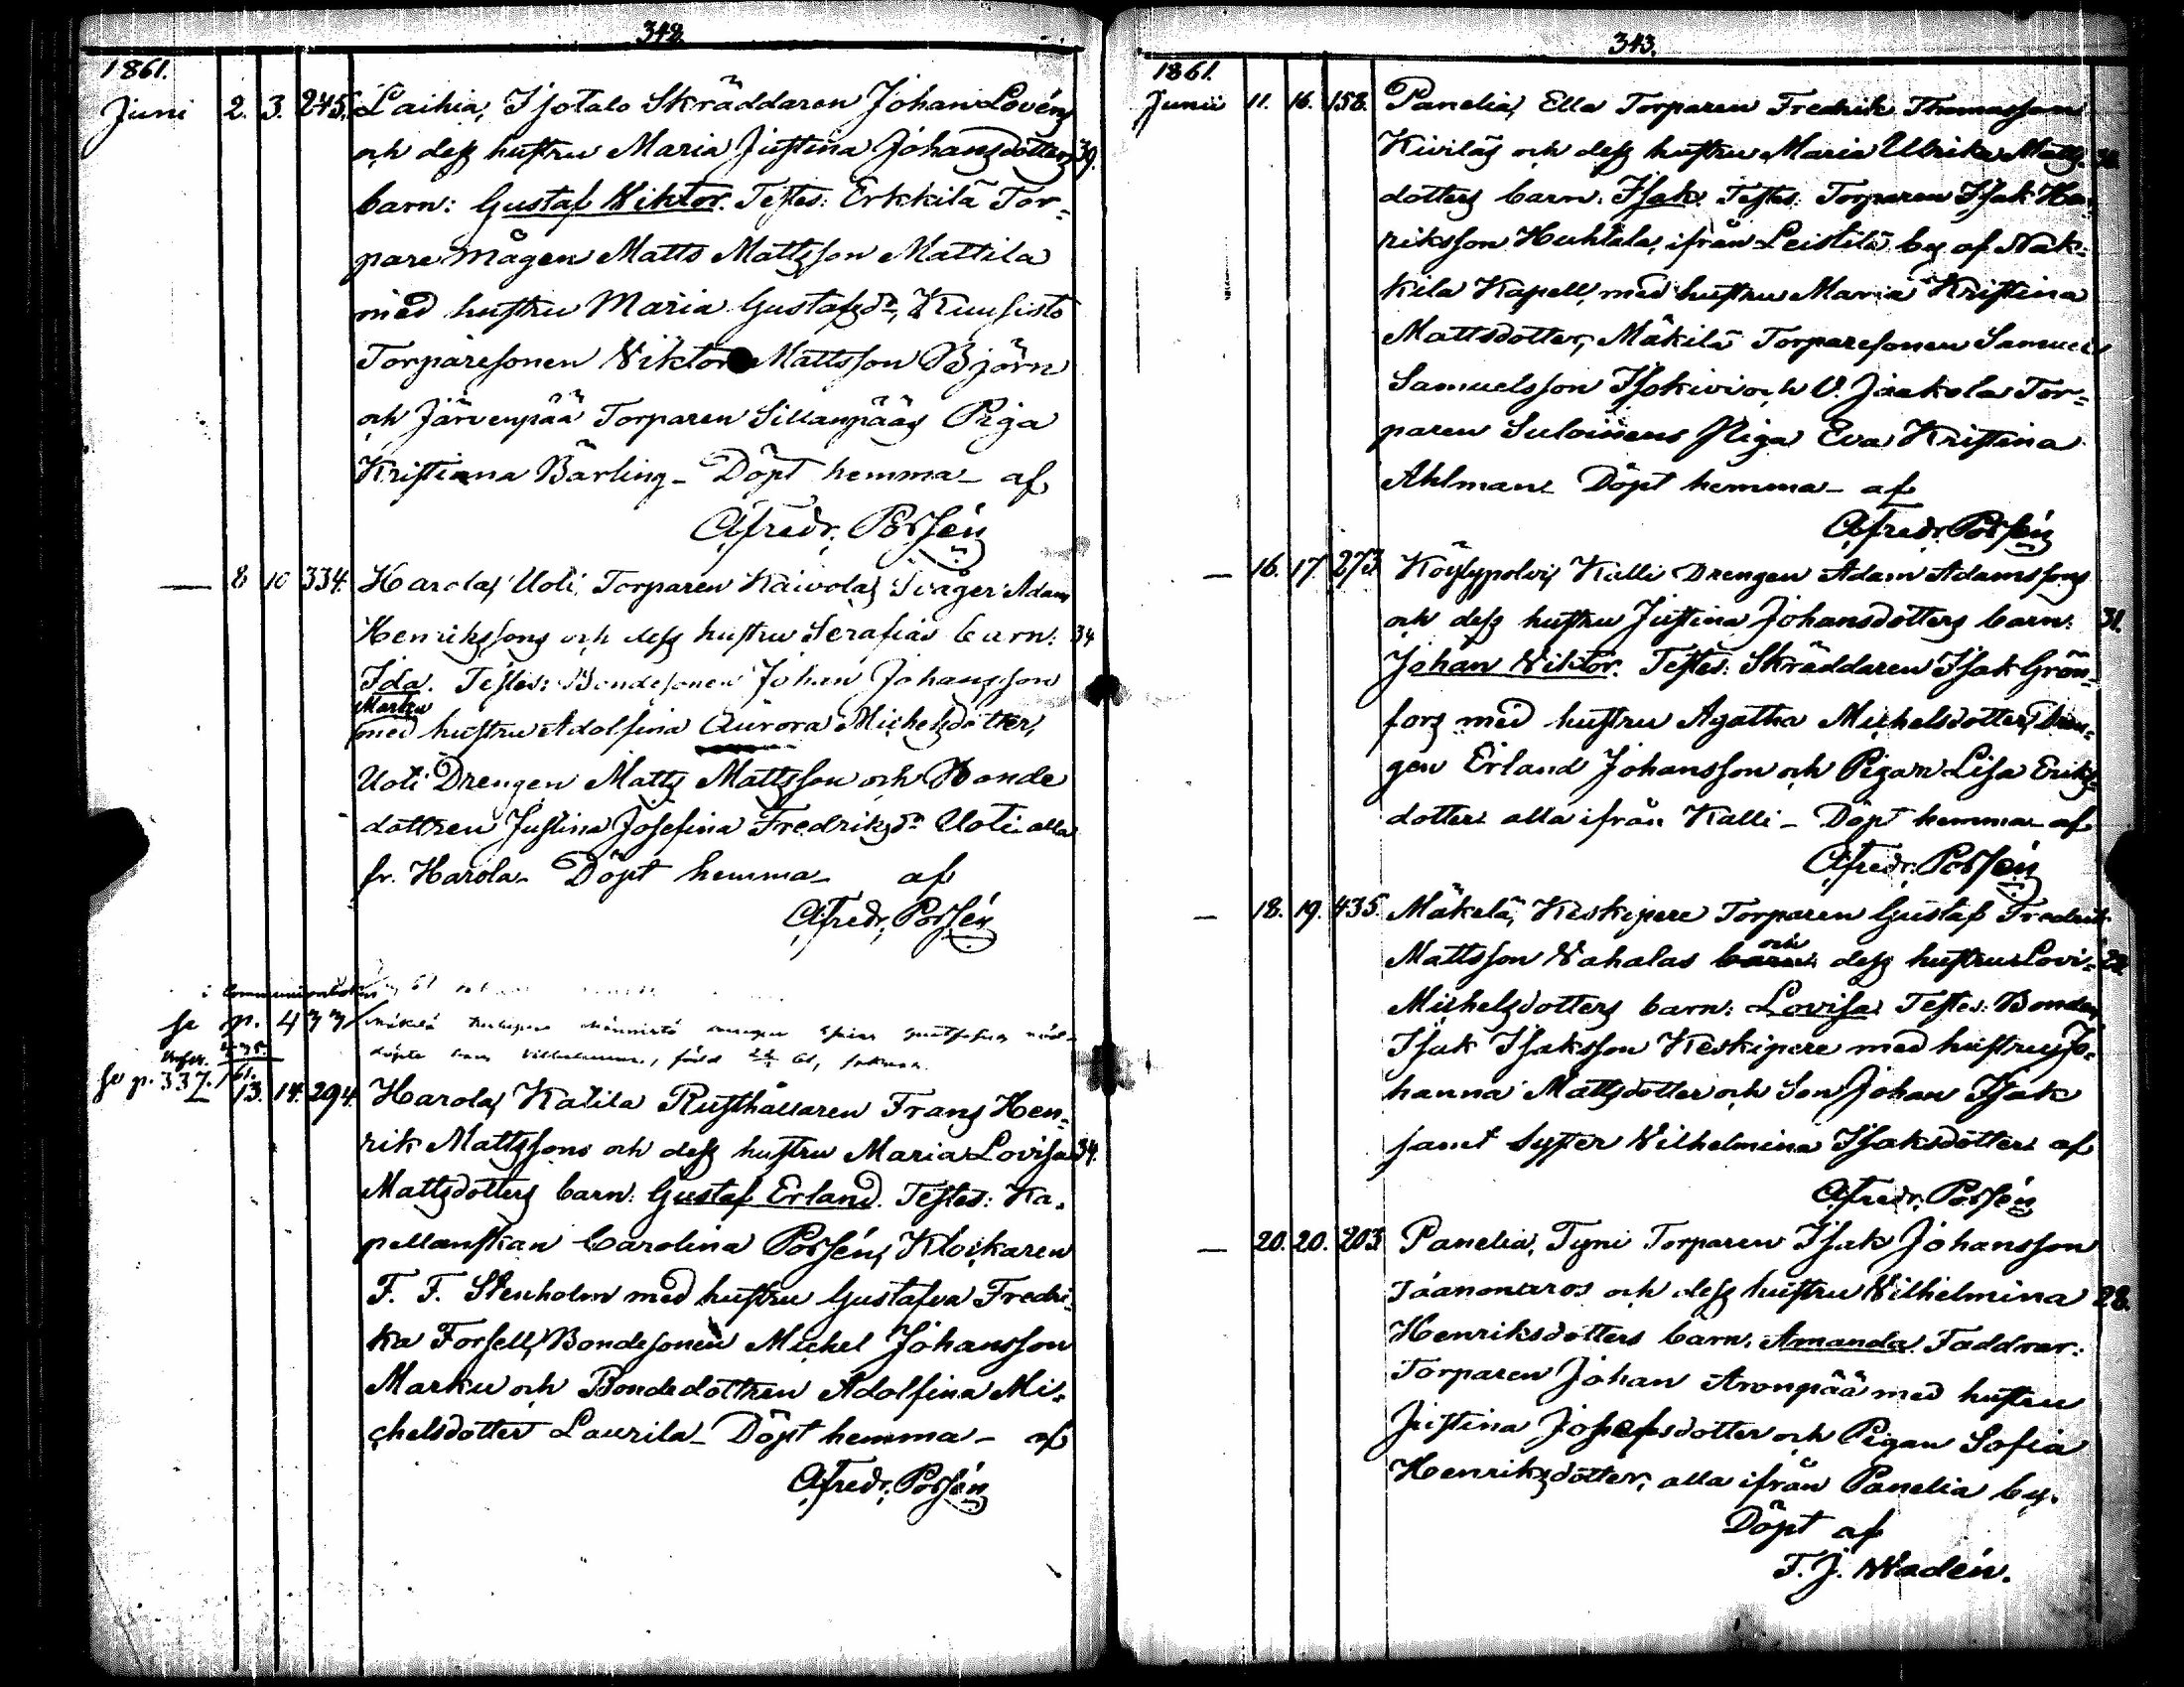 342.
1861.
Juni 2. 3. 245. Laihia, Isotalo Skräddaren Johan Lovéns
och dess hustru Maria Justina Johansdotters 39.
barn: Gustaf Wiktor. Testes: Erkkilä Tor-
pare mågen Matts Mattsson Mattila
med hustru Maria Gustafsdr, Kuusisto
Torparesonen Viktor Mattsson Björn
och Järvenpää Torparen Sillanpääs Piga
Kristiana Bärling - Döpt hemma - af
A. Fredr. Porsén
— 8 10 334. Harola, Uoti Torparen Kaivolas Svåger Adam
Henrikssons och dess hustru Serafias barn: 34
Ida. Testes: Bondesonen Johan Johansson
Marku
med hustru Adolfina Aurora Michelsdotter,
Uoti Drengen Matts Mattsson och Bonde
dottren Justina Josefina Fredriksdr Uoti alla
fr. Harola. Döpt hemma - af
A. Fredr. Porsén
i Communionboken
se p. 433 Mäkelä
döpte barn Vilhelmina, född
se p. 337.
13. 14. 294. Harola, Katila Rusthållaren Frans Hen-
rik Mattssons och dess hustru Maria Lovisa 34.
Mattsdotters barn: Gustaf Erland. Testes: Ka-
pellanskan Carolina Porsén, Klockaren
F. F. Stenholm med hustru Gustafva Fredri-
ka Forsell, Bondesonen Michel Johansson
Marku och Bondedottren Adolfina Mi-
chelsdotter Laurila - Döpt hemma - af
A. Fredr. Porsén
343.
1861.
Junii 11. 16. 158. Panelia, Ella Torparen Fredrik Thomasson
Kiviläs och dess hustru Maria Ulrika Matts-
dotters barn: Isak. Testes: Torparen Isak Hen-
riksson Huhtala, ifrån Leistilä by af Nak-
kila Kapell, med hustru Maria Kristina
Mattsdotter, Mäkilä Torparesonen Samuel
Samuelsson Isokivi och V. Jaakola Tor-
paren Suloisens Piga Eva Kristina
Ahlman - Döpt hemma - af
A. Fredr. Porsén
— 16. 17. 273. Köylypolvi, Kalli Drengen Adam Adamssons
och dess hustru Justina Johansdotters barn: 31.
Johan Wiktor. Testes: Skräddaren Isak Grön-
fors med hustru Agatha Michelsdotter, Dren-
gen Erland Johansson och Pigan Lisa Eriks-
dotter alla ifrån Kalli - Döpt hemma af
A. Fredr. Porsén
— 18. 19. 435. Mäkelä, Keskipere Torparen Gustaf Fredrik
Mattsson Vahalas och dess hustru Lovi-
Michelsdotters barn: Lovisa. Testes: Bonden
Isak Isaksson Keskipere med hustru Jo-
hanna Mattsdotter och Son Johan Isak
samt Syster Wilhelmina Isaksdotter af
A. Fredr. Porsén
— 20. 20. 203 Panelia, Tyni Torparen Isak Johansson
Tåanomaros och dess hustru Wilhelmina 28.
Henriksdotters barn: Amanda. Faddrar:
Torparen Johan Aronpää med hustru
Justina Josefsdotter och Pigan Sofia
Henriksdotter, alla ifrån Panelia by.
Döpt af
F. J. Wadén.